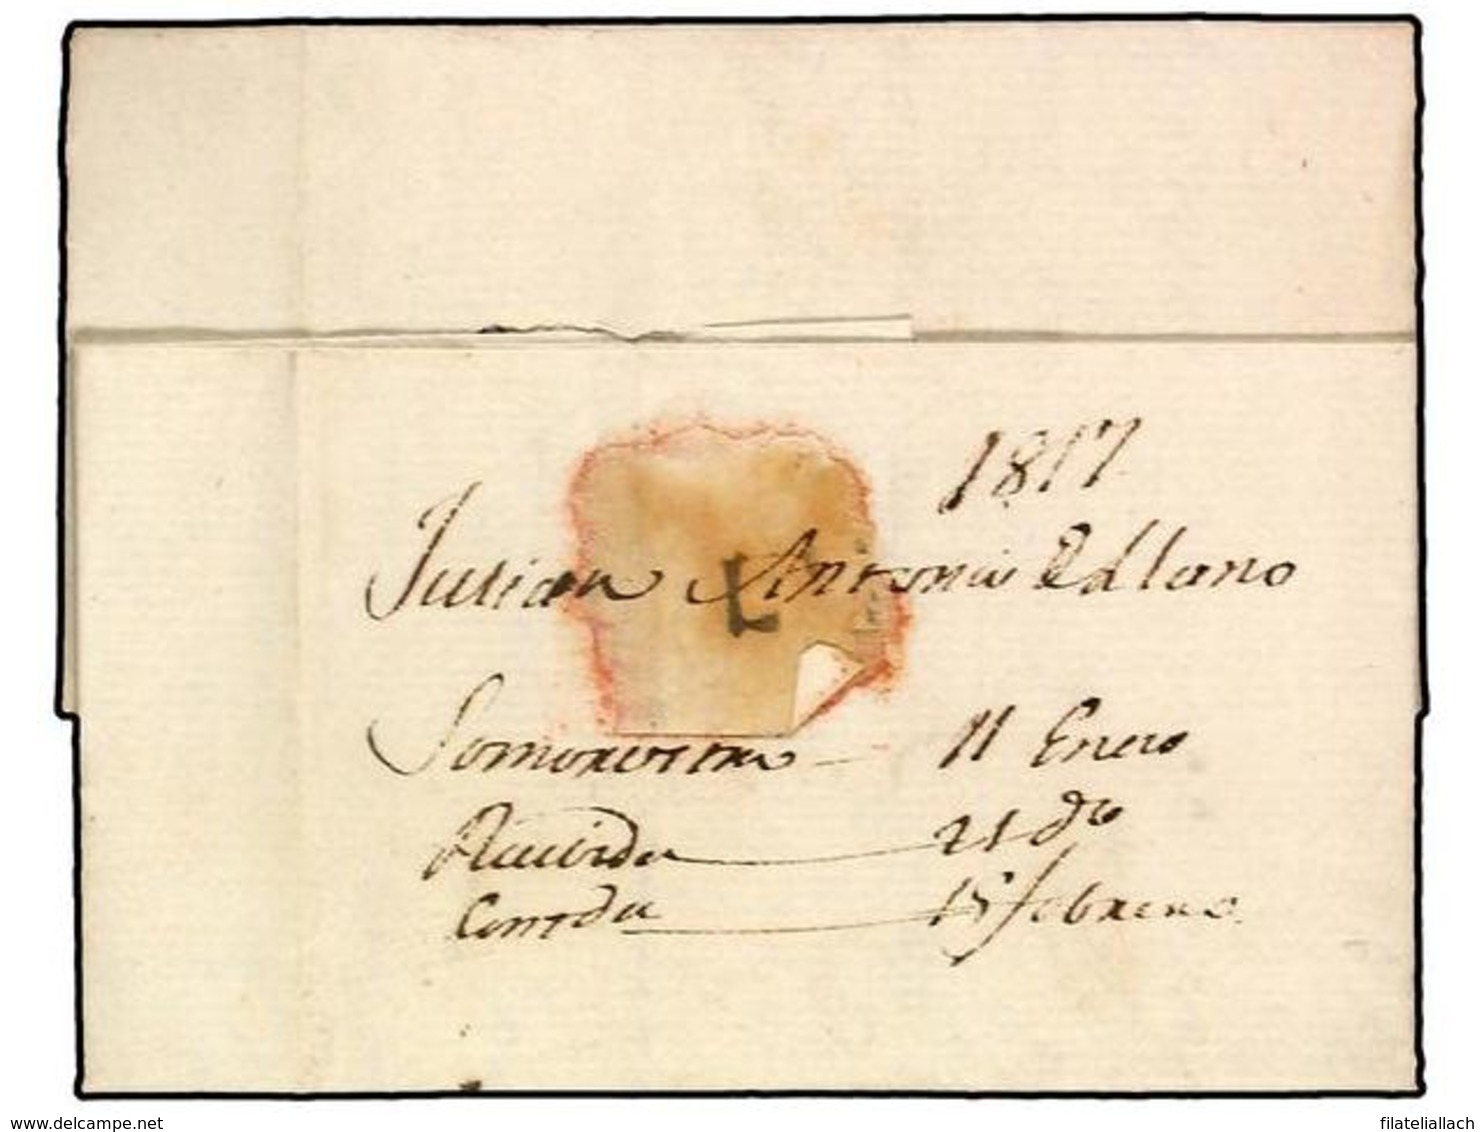 1817
Julian Antonio de Llano
Somorostro 11 Enero
Recivida 21 do
Contda 15 febrero
www.delcampe.net
filateliallach